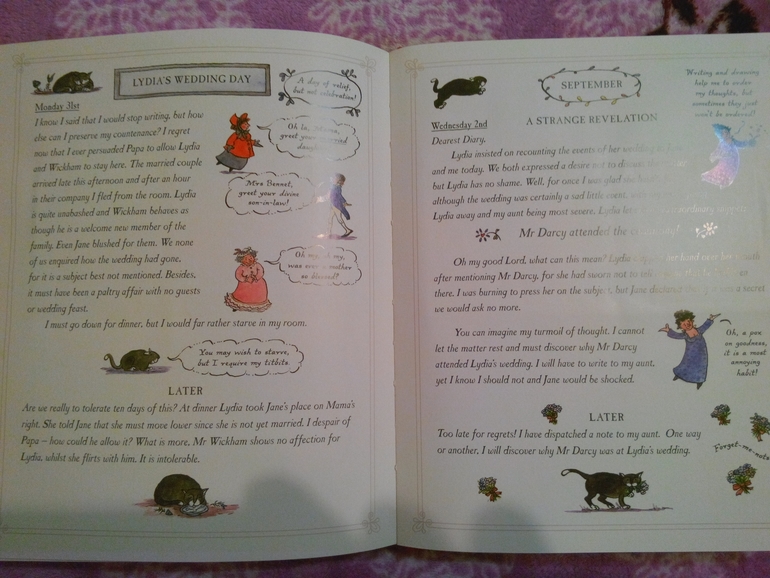 LYDIA'S WEDDING DAY
A day of relief,
but not celebration!
Monday 31st
I know I said that I would stop writing, but how
else can I preserve my countenance? I regret
now that I ever persuaded Papa to allow Lydia
and Wickham to stay here. The married couple
arrived late this afternoon and after an hour
in their company I fled from the room. Lydia
is quite unabashed and Wickham behaves as
though he is a welcome new member of the
family. Even Jane blushed for them. We none
of us enquired how the wedding had gone,
for it is a subject best not mentioned. Besides,
it must have been a paltry affair with no guests
or wedding feast.
Oh la,
greet your married
Mrs Bennet,
greet your divine
son-in-law!
Oh my, oh my,
was ever a mother
so blessed?
I must go down for dinner, but I would far rather starve in my room.
You may wish to starve,
but I require my titbits.
LATER
Are we really to tolerate ten days of this? At dinner Lydia took Jane's place on Mama's
right. She told Jane that she must move lower since she is not yet married. I despair of
Papa – how could he allow it? What is more, Mr Wickham shows no affection for
Lydia, whilst she flirts with him. It is intolerable.
SEPTEMBER
Writing and drawing
help me to order
my thoughts, but
sometimes they just
won't be ordered!
A STRANGE REVELATION
Wednesday 2nd
Dearest Diary,
Lydia insisted on recounting the events of her wedding to
and me today. We both expressed a desire not to discuss the
but Lydia has no shame. Well, for once I was glad she
although the wedding was certainly a sad little event,
Lydia away and my aunt being most severe. Lydia let
Mr Darcy attended the
Oh my good Lord, what can this mean? Lydia her hand over her mouth
after mentioning Mr Darcy, for she had sworn not to tell
there. I was burning to press her on the subject, but Jane declared a secret
we would ask no more.
You can imagine my turmoil of thought. I cannot
let the matter rest and must discover why Mr Darcy
attended Lydia's wedding. I will have to write to my aunt,
yet I know I should not and Jane would be shocked.
Oh, a pox
on goodness,
it is a most
annoying
habit!
LATER
Too late for regrets! I have dispatched a note to my aunt. One way
or another, I will discover why Mr Darcy was at Lydia's wedding.
Forget-me-nots